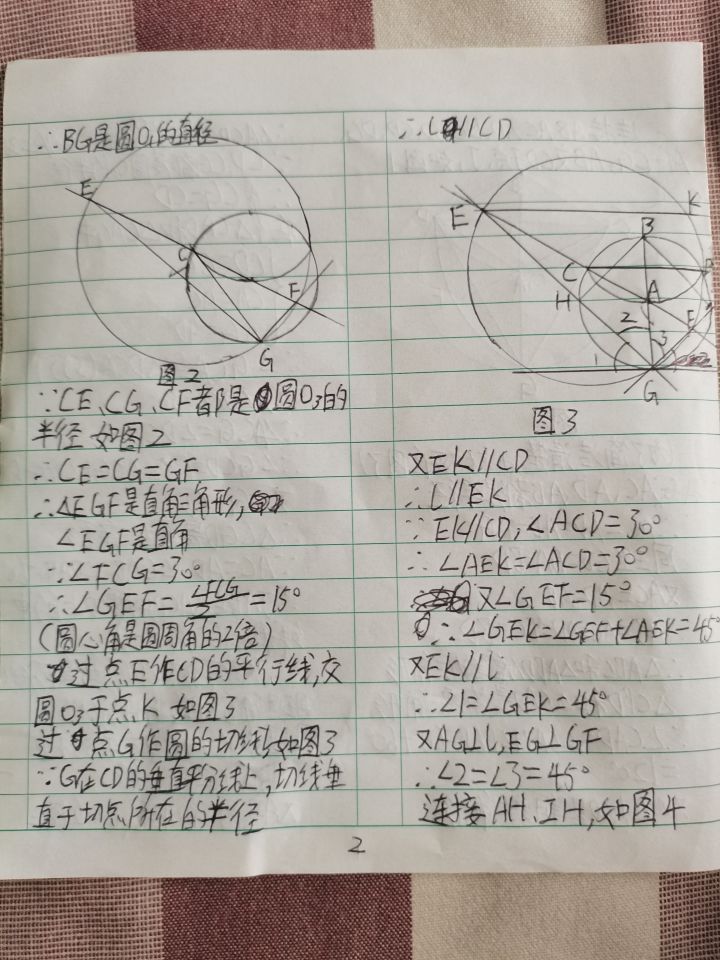 ∴BG是圆O₁的直径
E
C
F
G
图2
∵CE、CG、CF都是圆O₃的
半径 如图2
∴CE=CG=GF
∴△EGF是直角三角形,
∠EGF是直角
∵∠FCG=30°
∴∠GEF=∠FCG/2=15°
(圆心角是圆周角的2倍)
过点E作CD的平行线,交
圆O₃于点K 如图3
过点G作圆的切线l如图3
∵G在CD的垂直平分线上,切线垂
直于切点所在的半径
∴l//CD
E
K
B
C
D
H
A
2
F
3
1
G
图3
又EK//CD
∴l//EK
∵EK//CD,∠ACD=30°
∴∠AEK=∠ACD=30°
又∠GEF=15°
∴∠GEK=∠GEF+∠AEK=45°
又EK//l
∴∠1=∠GEK=45°
又AG⊥l,EG⊥GF
∴∠2=∠3=45°
连接AH、IH,如图4
2